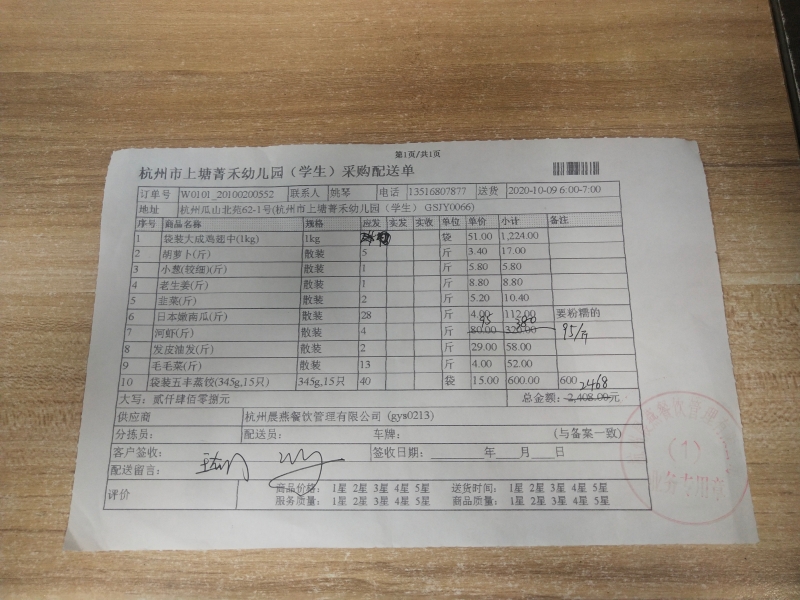 第1页/共1页
杭州市上塘菁禾幼儿园（学生）采购配送单
订单号 W0101_20100200552 联系人 姚琴 电话 13516807877 送货 2020-10-09 6:00-7:00
地址 杭州瓜山北苑62-1号(杭州市上塘菁禾幼儿园（学生） GSJY0066)
序号 商品名称 规格 应发 实发 实收 单位 单价 小计 备注
1 袋装大成鸡翅中(1kg) 1kg 袋 51.00 1,224.00
2 胡萝卜(斤) 散装 5 斤 3.40 17.00
3 小葱(较细)(斤) 散装 1 斤 5.80 5.80
4 老生姜(斤) 散装 1 斤 8.80 8.80
5 韭菜(斤) 散装 2 斤 5.20 10.40
6 日本嫩南瓜(斤) 散装 28 斤 4.00 112.00 要粉糯的
95 380
7 河虾(斤) 散装 4 斤 80.00 320.00 95/斤
8 发皮油发(斤) 散装 2 斤 29.00 58.00
9 毛毛菜(斤) 散装 13 斤 4.00 52.00
10 袋装五丰蒸饺(345g,15只) 345g,15只 40 袋 15.00 600.00 600
2468
大写：贰仟肆佰零捌元 总金额：2,408.00元
供应商 杭州晨燕餐饮管理有限公司 (gys0213)
分拣员： 配送员： 车牌： (与备案一致)
客户签收： 签收日期：________年____月____日
配送留言：
评价 商品价格： 1星 2星 3星 4星 5星 送货时间： 1星 2星 3星 4星 5星
服务质量： 1星 2星 3星 4星 5星 商品质量： 1星 2星 3星 4星 5星
燕餐饮管理
(1)
业务专用章